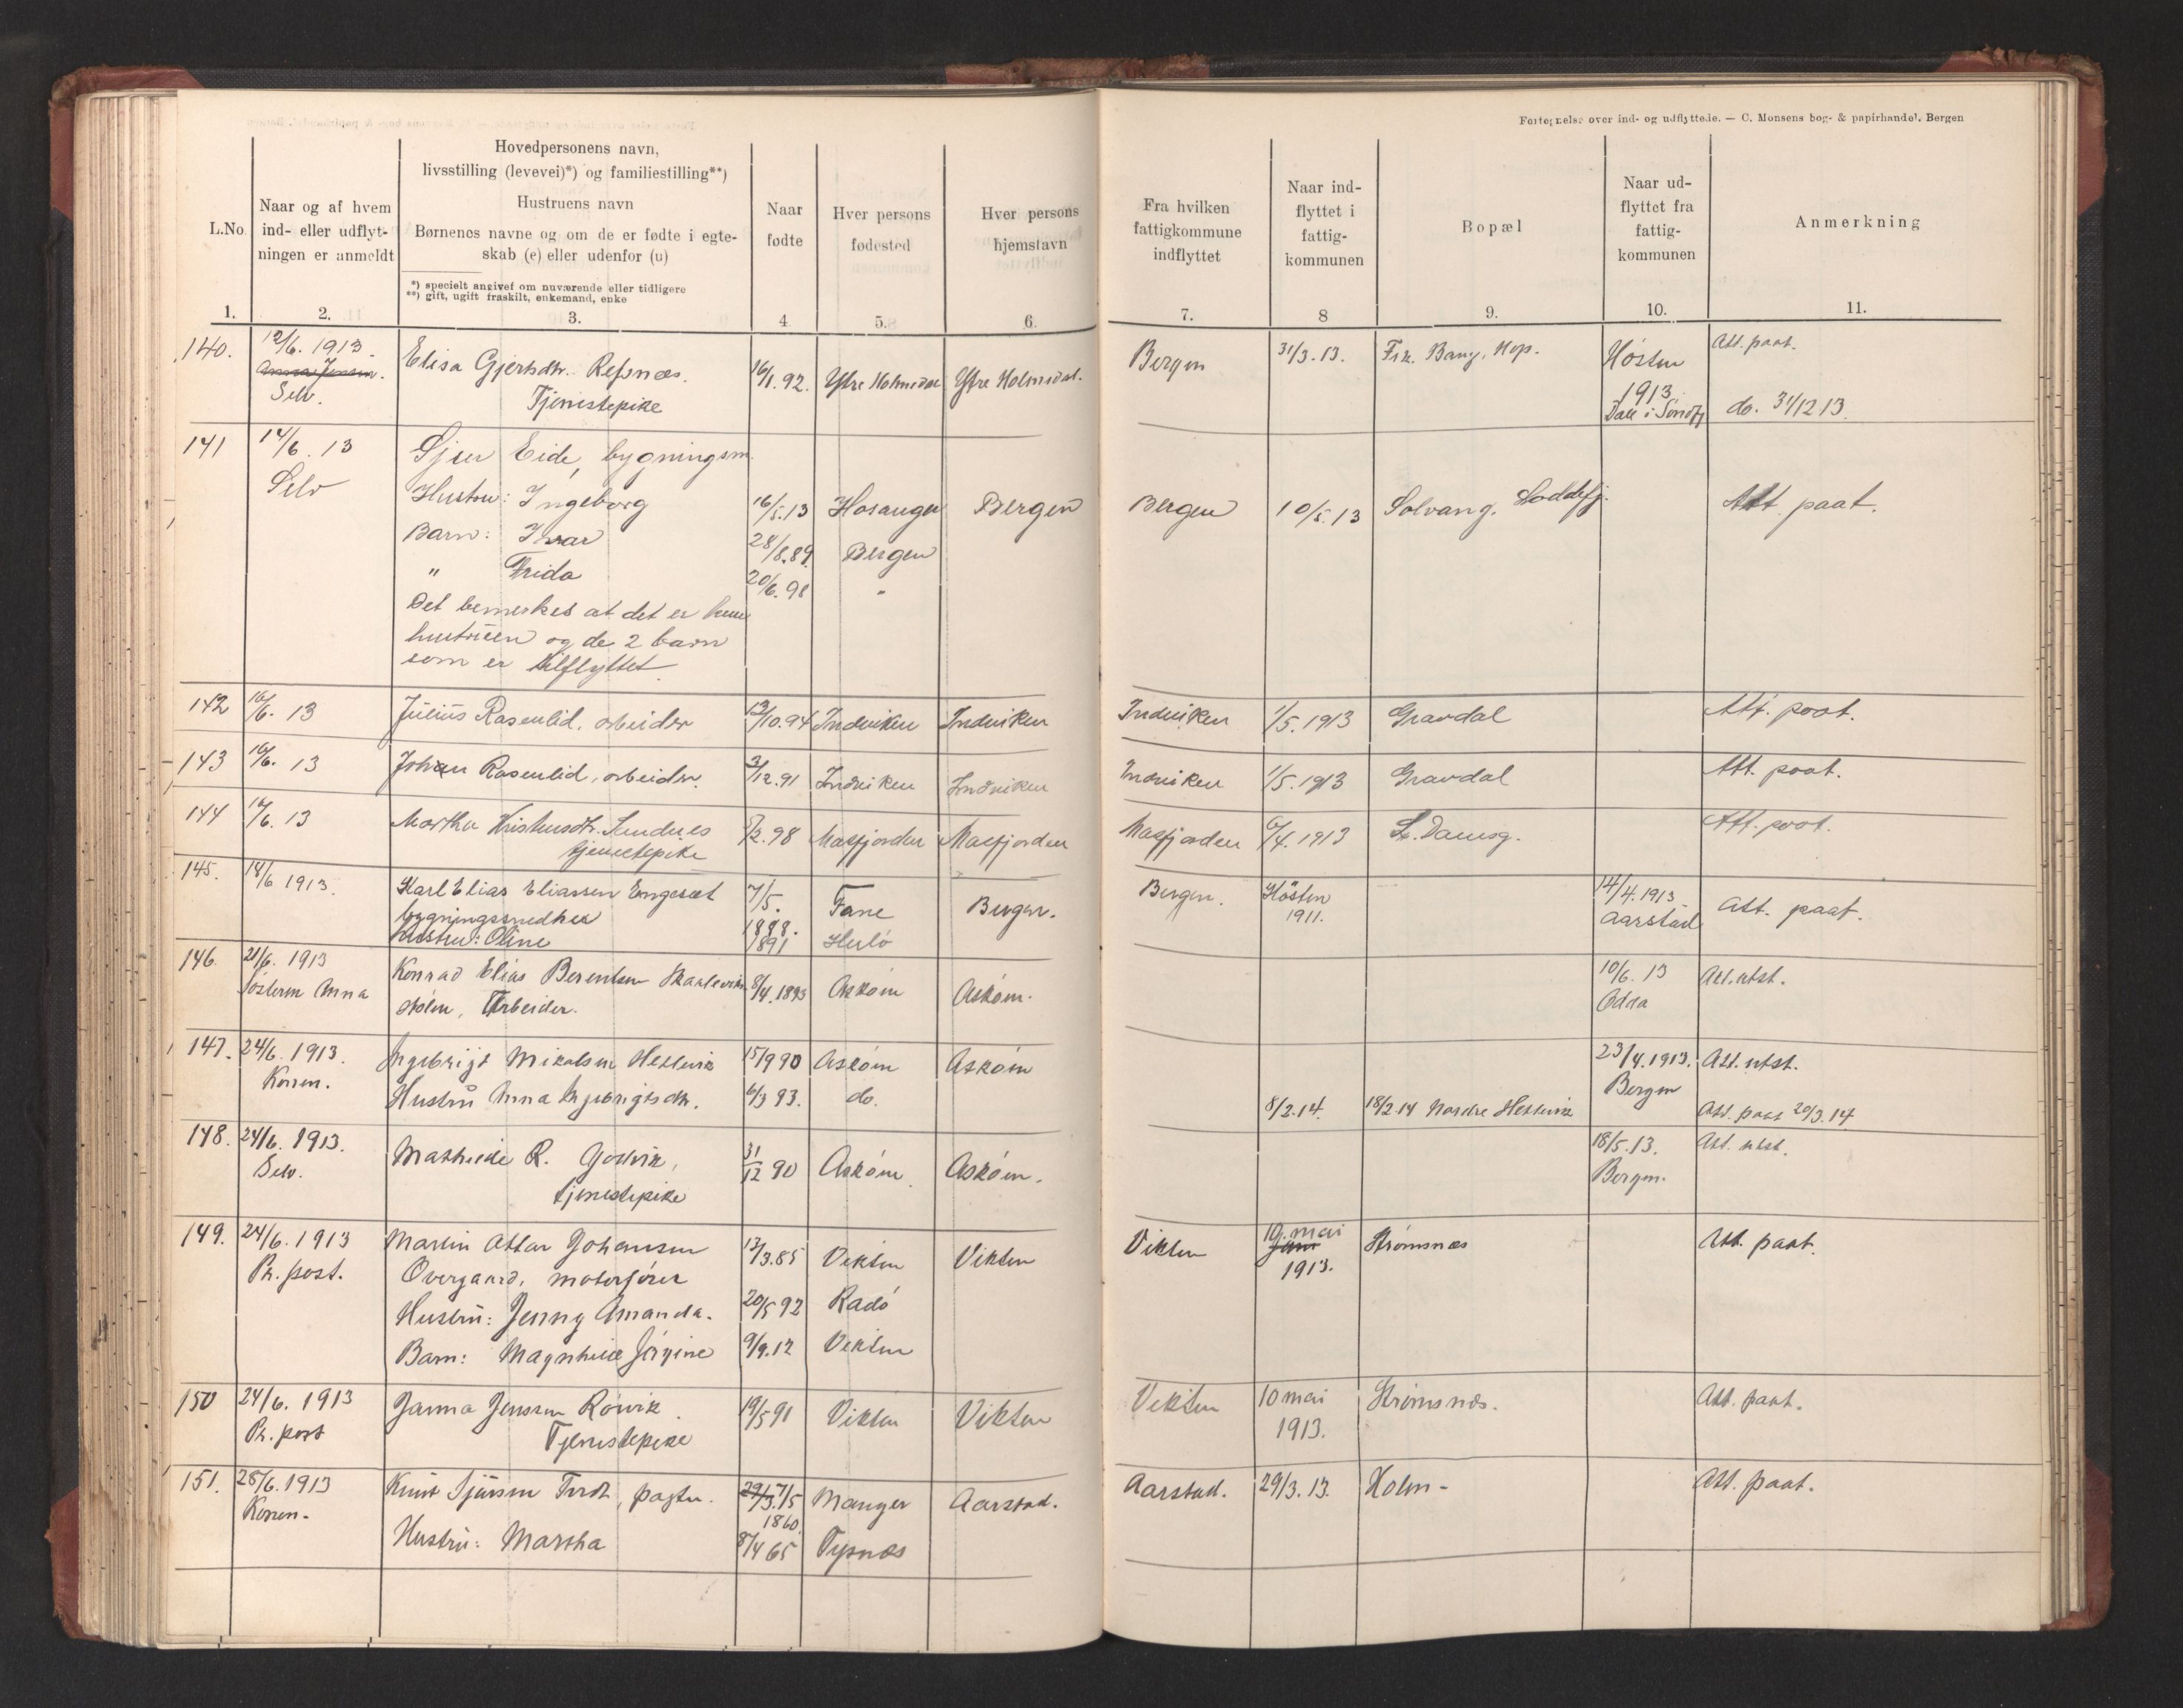 Fortegnelse over ind- og udflyttede. — C. Monsens bog- & papirhandel. Bergen
L.No.
Naar og af hvem ind- eller udflyt-ningen er anmeldt
Hovedpersonens navn,
livsstilling (levevei)*) og familiestilling**)
Hustruens navn
Børnenes navne og om de er fødte i egte-
skab (e) eller udenfor (u)
*) specielt angivet om nuværende eller tidligere
**) gift, ugift fraskilt, enkemand, enke
Naar fødte
Hver persons fødested
Hver persons hjemstavn
Fra hvilken fattigkommune indflyttet
Naar ind-flyttet i fattig-kommunen
Bopæl
Naar ud-flyttet fra fattig-kommunen
Anmerkning
1. 2. 3. 4 5. 6. 7. 8 9. 10. 11.
140. 12/6. 1913. Elisa Gjertsdtr. Refsnæs. 16/1. 92. Ytre Holmedal Ytre Holmedal. Bergen 31/3. 13. Frk. Bang, Hop. Høsten Att. paat.
Selv. Tjenestepike 1913
Dale i Søndfj do. 31/12 13.
141 14/6. 13 Sjur Eide, bygningsm.
Selv Hustru: Ingeborg 16/5.13 Hosanger Bergen Bergen 10/5.13 Solvang. Att. paat.
Barn: Ivar 28/8.89. Bergen
" Frida 20/6. 98 "
Det bemerkes at det er kun
hustruen og de 2 barn
som er tilflyttet
142 16/6. 13 Julius Rasenlid, arbeider 13/10.94 Indviken Indviken Indviken 1/5. 1913 Gravdal Att. paat.
143 16/6. 13 Johan Rasenlid, arbeider. 2/12.91 Indviken Indviken Indviken 1/5. 1913 Gravdal Att. paat.
144 16/6. 13 Martha Sandnes /2. 98 Masfjorden Masfjorden Masfjorden 6/4. 1913 Damsg. Att. paat.
tjenestepike
145. 18/6 1913. Karl Elias Eliassen Engeset 7/5. Fane Bergen. Bergen. Høsten 14/4. 1913 Att. paat.
bygningssnedker 1888. 1911. Aarstad
Hustru: Oline 1891 Herlø
146. 21/6. 1913 Konrad Elias Berentsen 8/4. 1893 Askøen Askøen. 10/6. 13 Att. utst.
Søsteren Anna Arbeider. Odda
147. 24/6. 1913. Ingebrigt Mikalsen Hetlevik 15/9 90 Askøen Askøen 23/4. 1913. Att. utst.
Konen. Hustru Anna Ingebrigtsdtr. 6/3 93. do. Bergen
8/2. 14. 18/2.14 Nordre Hetlevik Att. paat 20/3. 14
148. 24/6. 1913. Mathilde R. Godvik, 31/12 90 Askøen Askøen. 18/5. 13. Att. utst.
Selv. tjenestepike Bergen.
149. 24/6. 1913 Martin Ottar Johansen 13/3.85 Vikten Vikten Vikten 10. mai Strømsnæs Att. paat.
Pr. post. Overgaard, motorfører 1913.
Hustru: Jenny Amanda. 20/5 92 Radø
Barn: Magnhild Jørgine 9/9.12 Vikten
150 24/6. 1913 Janna Jenssen Rørvik 19/5 91 Vikten Vikten Vikten 10 mai Strømsnæs. Att. paat.
Pr. post Tjenestepike 1913.
151. 28/6. 1913 Knut Sjursen Tredt, pagter. 29/3. 7/5 Manger Aarstad. Aarstad. 29/3. 13. Holm- Att. paat.
Konen. 1860.
Hustru: Martha 8/4 65 Tysnæs